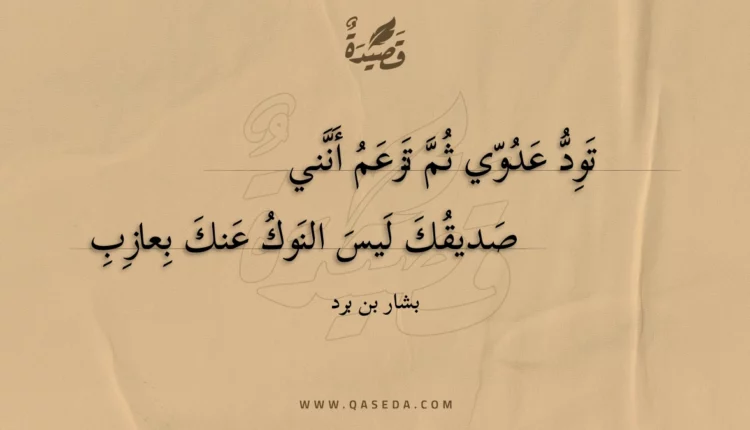 قَصِيدَةٌ
تَوِدُّ عَدُوّي ثُمَّ تَزعَمُ أَنَّني
صَديقُكَ لَيسَ النَوكُ عَنكَ بِعازِبِ
بشار بن برد
WWW.QASEDA.COM